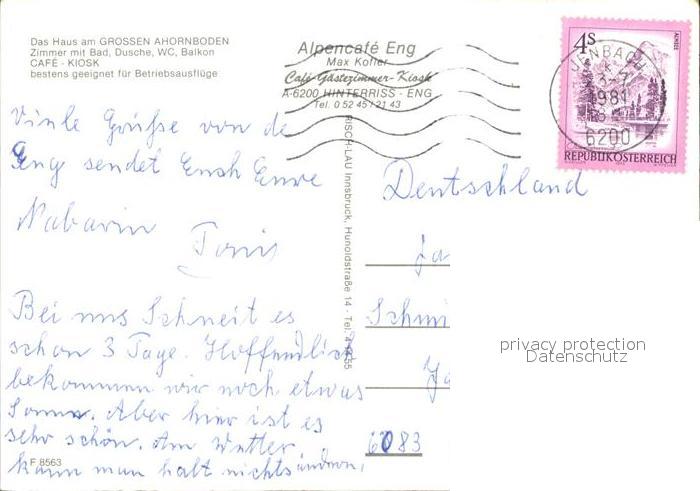 Das Haus am GROSSEN AHORNBODEN
Zimmer mit Bad, Dusche, WC, Balkon
CAFÉ - KIOSK
bestens geeignet für Betriebsausflüge
Alpencafé Eng
Max Kofler
Café-Gästezimmer-Kiosk
A-6200 HINTERRISS - ENG
Tel. 0 52 45 / 21 43
4S
ALMSEE
JENBACH
1981
6200
REPUBLIK ÖSTERREICH
Viele Grüße von de
Eng sendet Euch Eure
Nabarin
Tonis
RISCH-LAU Innsbruck, Hunoldstraße 14 - Tel.
Deutschland
Schmi
Bei uns Schneit es
schon 3 Tage. Hoffendlich
bekommen wir noch etwas
Sonne. Aber hier ist es
sehr schön. Am Wetter
kann man halt nichts ändern,
6083
privacy protection
Datenschutz
F 8563